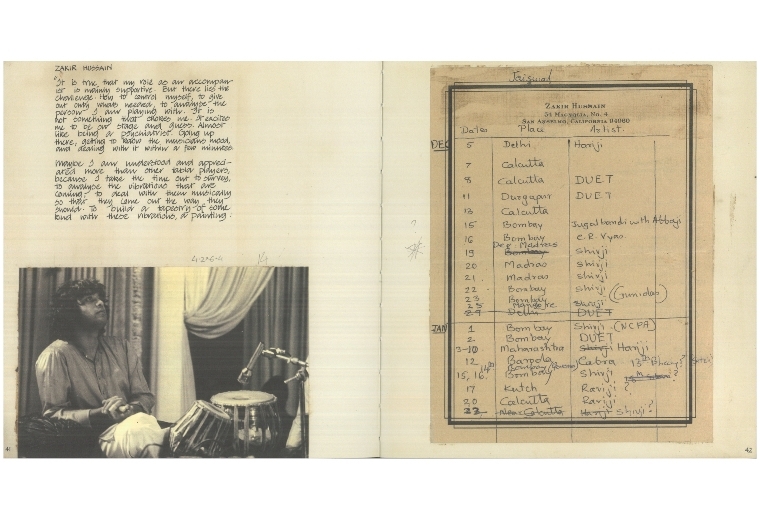 ZAKIR HUSSAIN
"It is true that my role as an accompan-
ist is mainly supportive. But there lies the
challenge: How to control myself, to give
out only what's needed, to analyse the
person I am playing with. It is
not something that shakes me. It excites
me to be on stage and guess. Almost
like being a psychiatrist. Going up
there, getting to know the musician's mood,
and dealing with it within a few minutes.
Maybe I am understood and appreci-
ated more than other tabla players,
because I take the time out to survey,
to analyse the vibrations that are
coming; to deal with them musically
so that they come out the way they
should. To build a tapestry of some
kind with these vibrations, a painting.
41
Original
ZAKIR HUSSAIN
54 MAGNOLIA, NO. 4
SAN ANSELMO, CALIFORNIA 94960
Dates Place Artist
DEC 5 Delhi Hariji
7 Calcutta
8 Calcutta DUET
11 Durgapur DUET
13 Calcutta
15 Bombay Jugalbandi with Abbaji
16 Bombay C.R. Vyas
Dep. Madras
19 Bombay Shivji
20 Madras Shivji
21 Madras Shivji
22 Bombay Shivji (Gunidas)
23 Bombay
25 Mangalore Shivji
29 Delhi DUET
JAN 1 Bombay Shivji (NCPA)
2 Bombay DUET
3-10 Maharashtra Shivji Hariji
12 Baroda Cabra 13th
14th Bombay
15, 16 Bombay Shivji ?
17 Kutch Raviji ?
20 Calcutta Raviji
23 Near Calcutta Hariji Shivji ?
?
42